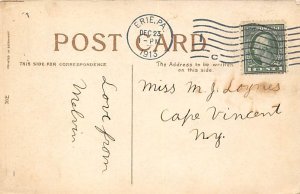 ERIE, PA.
DEC 23
1-PM
1913
POST CARD
THIS SIDE FOR CORRESPONDENCE
The Address to be written
on this side
PRINTED IN GERMANY
Love from
Melvin
Miss M. J. Loynes
Cape Vincent
N.y.